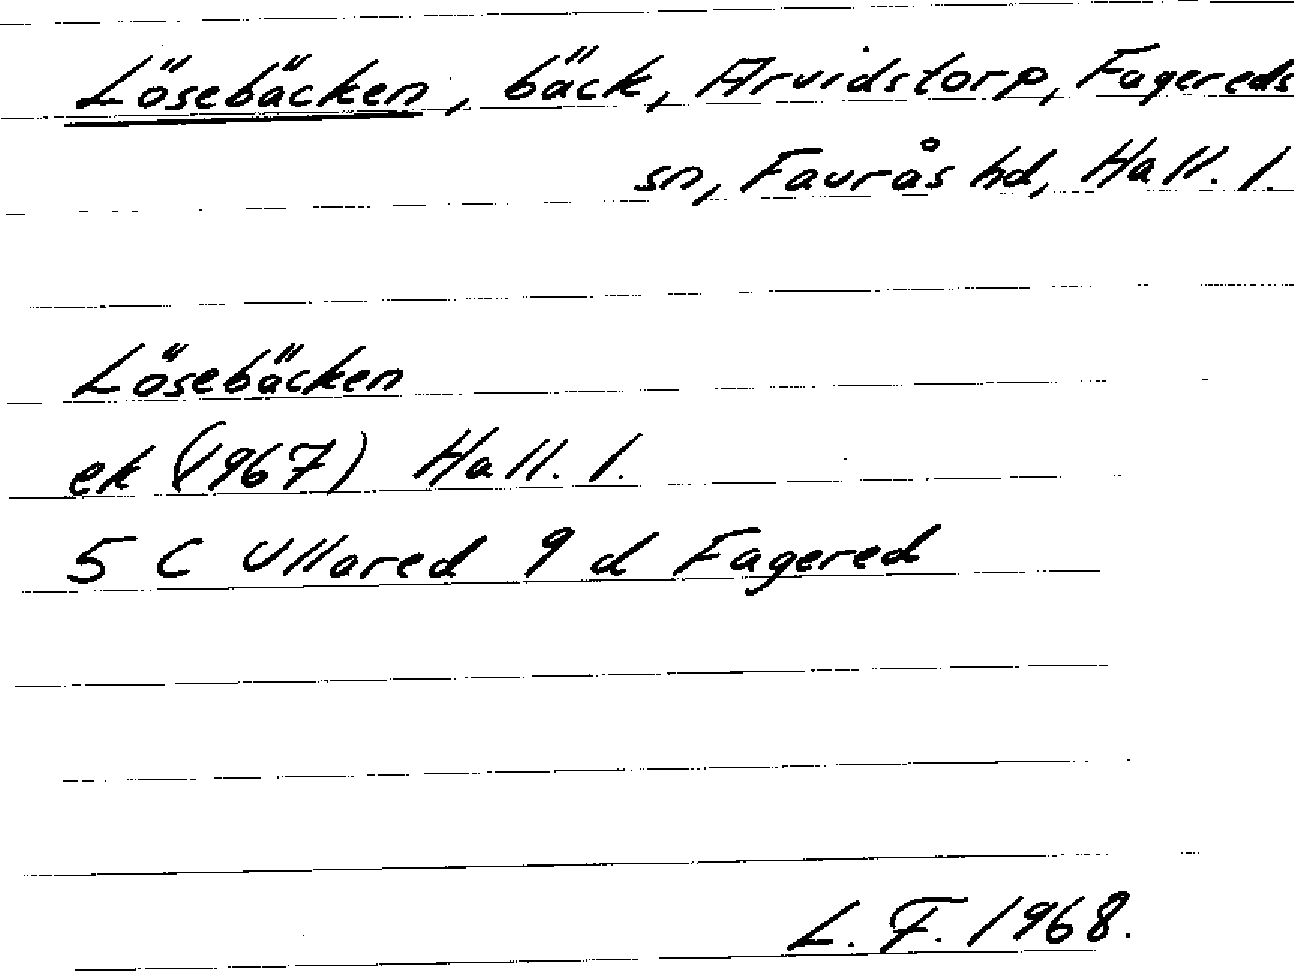 Lösebäcken, bäck, Arvidstorp, Fagereds
sn, Faurås hd, Hall. l.
Lösebäcken
ek (1967) Hall. l.
5 C Ullared 9 d Fagered
L. F. 1968.